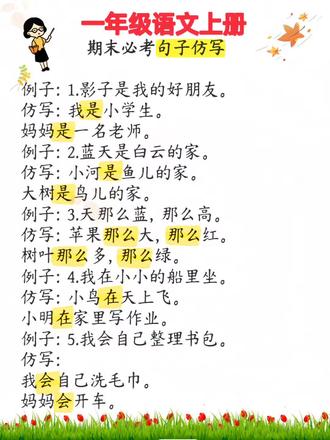 一年级语文上册
期末必考句子仿写
例子：1.影子是我的好朋友。
仿写：我是小学生。
妈妈是一名老师。
例子：2.蓝天是白云的家。
仿写：小河是鱼儿的家。
大树是鸟儿的家。
例子：3.天那么蓝，那么高。
仿写：苹果那么大，那么红。
树叶那么多，那么绿。
例子：4.我在小小的船里坐。
仿写：小鸟在天上飞。
小明在家里写作业。
例子：5.我会自己整理书包。
仿写：
我会自己洗毛巾。
妈妈会开车。